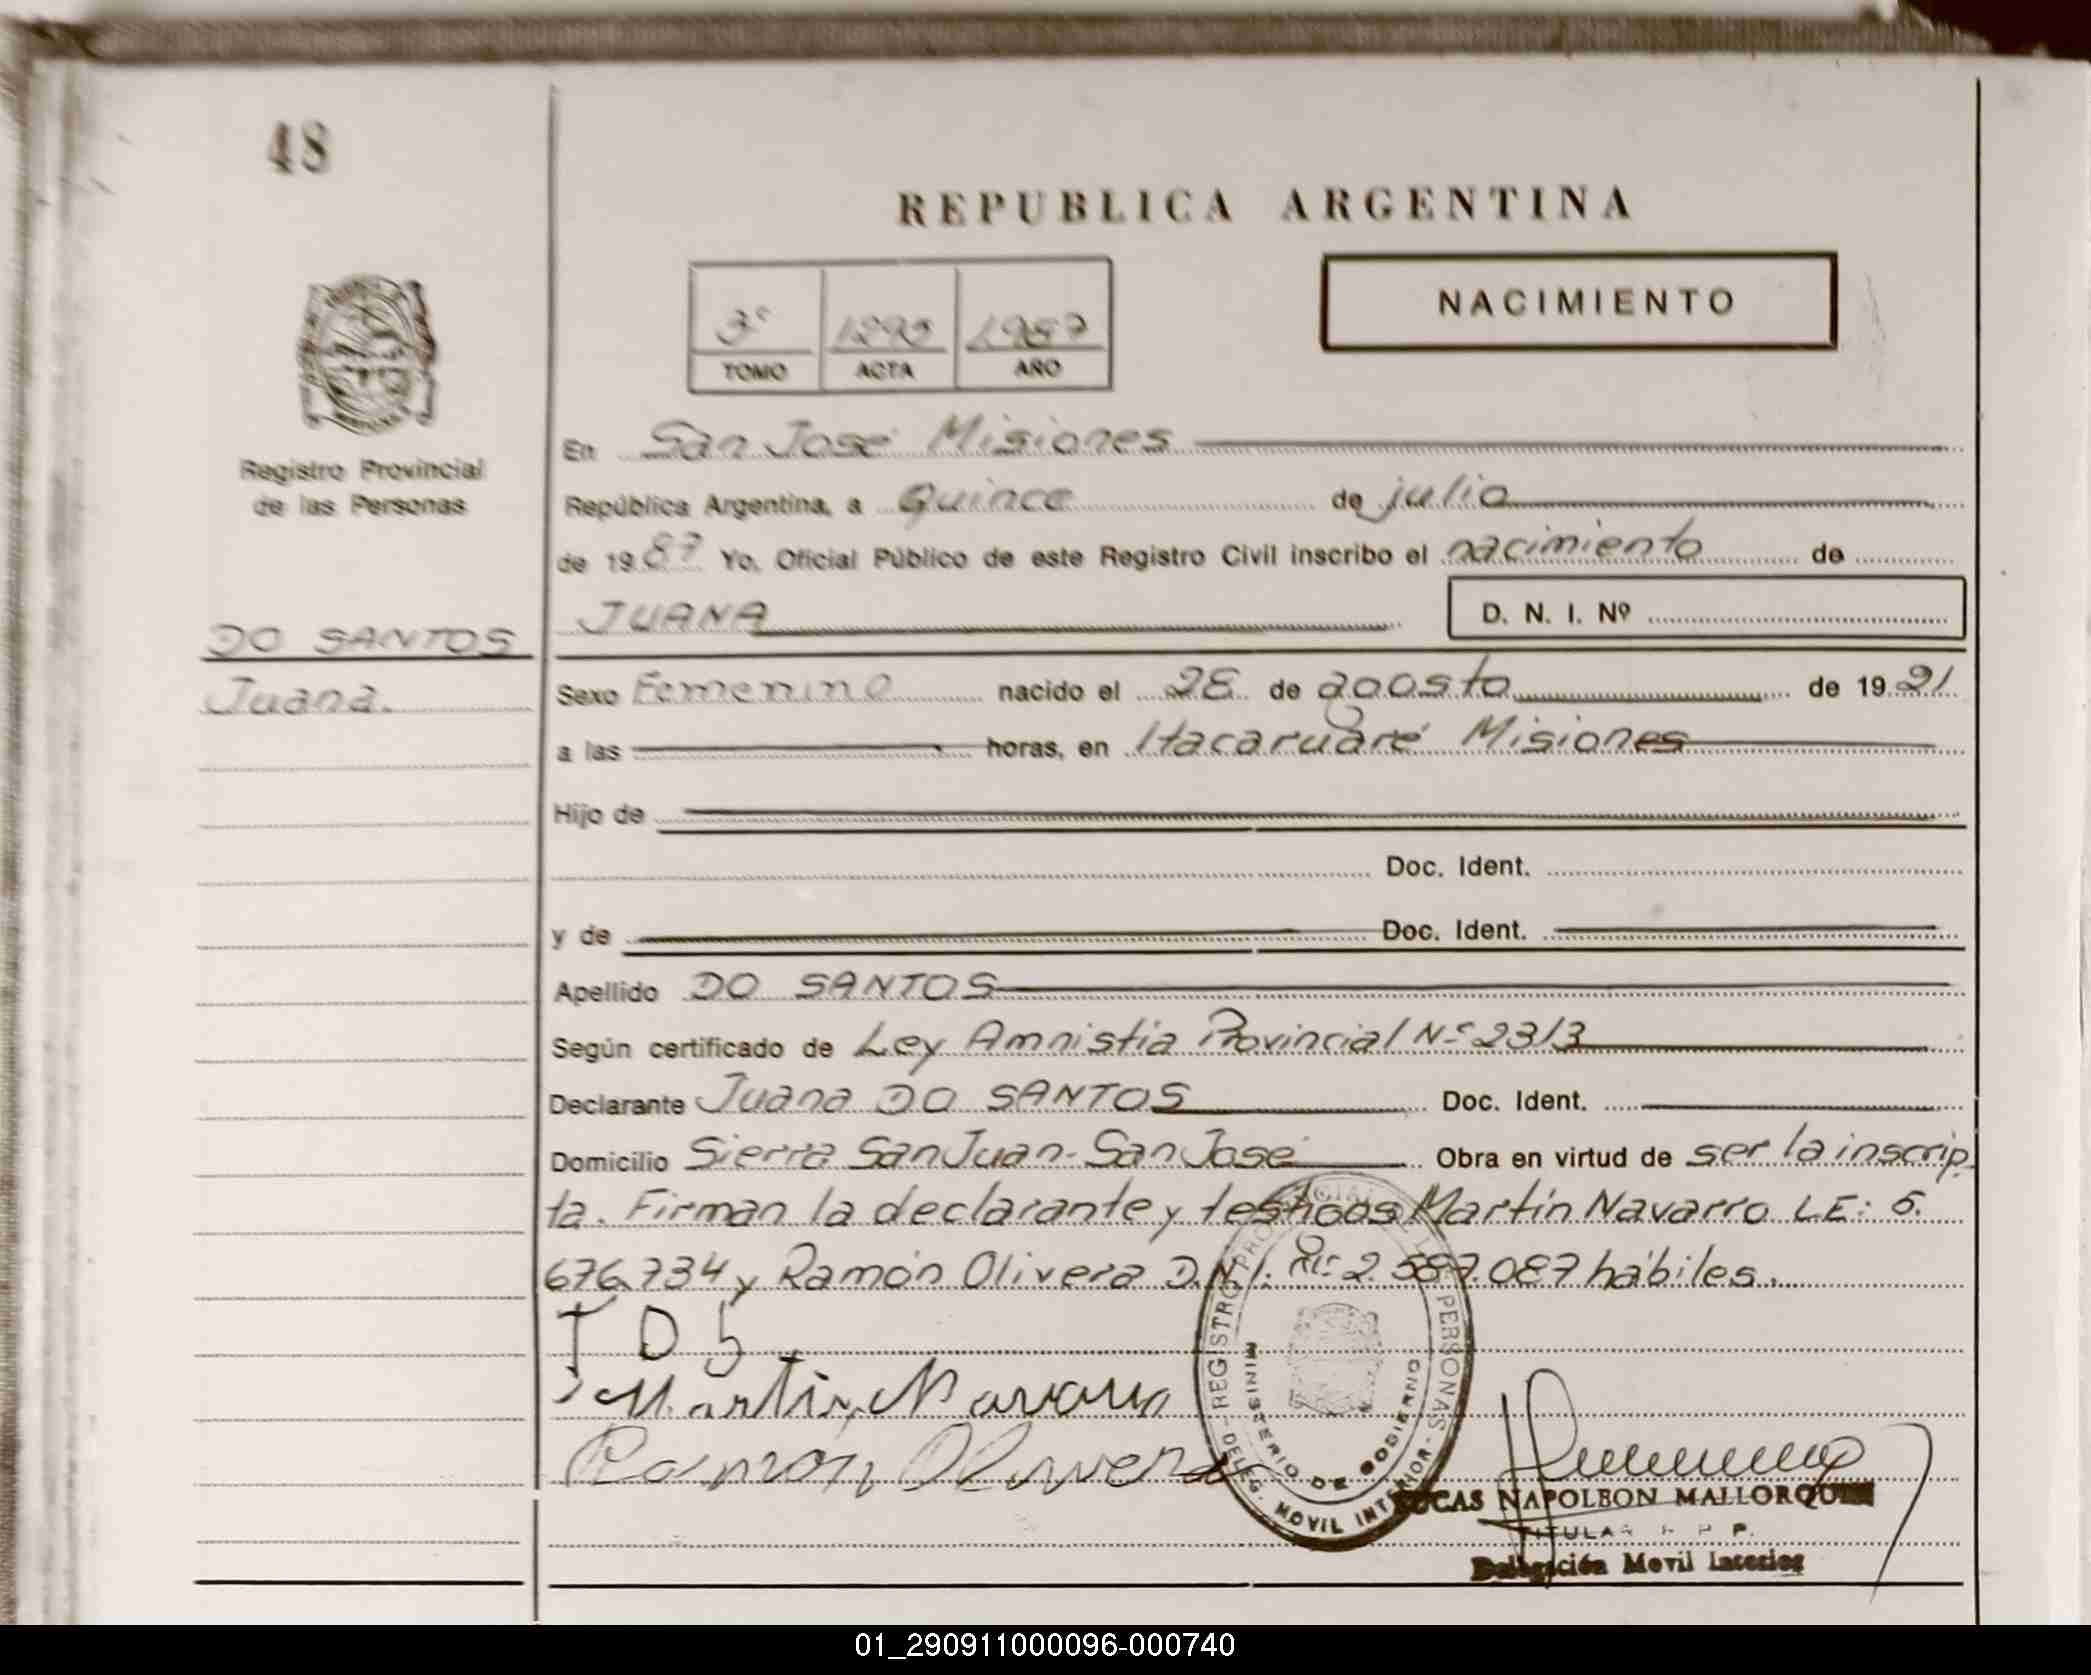 48
REPUBLICA ARGENTINA
NACIMIENTO
3º 1987
TOMO ACTA AÑO
Registro Provincial
de las Personas
En San José Misiones
República Argentina, a Quince de julio
de 1987 Yo, Oficial Público de este Registro Civil inscribo el nacimiento de
JUANA D. N. I. Nº
DO SANTOS
Juana.
Sexo Femenino nacido el 28 de agosto de 19 21
a las horas, en Itacaruaré Misiones
Hijo de
Doc. Ident.
y de Doc. Ident.
Apellido DO SANTOS
Según certificado de Ley Amnistia Provincial Nº 2313
Declarante Juana DO SANTOS Doc. Ident.
Domicilio Sierra San Juan - San José Obra en virtud de ser la inscrip
ta. Firman la declarante y testigos Martín Navarro LE: 5.
676.734 y Ramón Olivera D.N.I. Nº 2.587.087 hábiles.
J D S
Martin Navarro
Ramon Olivera
REGISTRO PROVINCIAL DE LAS PERSONAS - DELEG. MOVIL INTERIOR -
MINISTERIO DE GOBIERNO
LUCAS NAPOLEON MALLORQUIN
TITULAR R. P. P.
Delegación Movil Interior
01_290911000096-000740